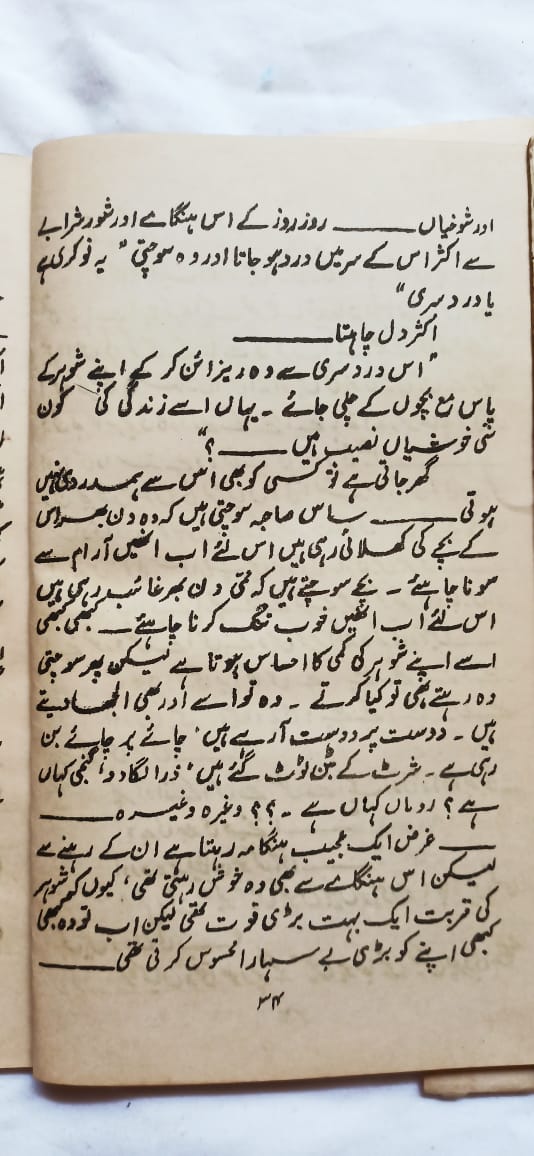 اور شوخیاں ——— روز روز کے اس ہنگامے اور شور شرابے
سے اکثر اس کے سر میں درد ہو جاتا اور وہ سوچتی " یہ نوکری ہے
یا درد سری "
اکثر دل چاہتا ———
" اس درد سری سے وہ ریزائن کر کے اپنے شوہر کے
پاس مع بچوں کے چلی جائے ۔ یہاں اسے زندگی کی کون
سی خوشیاں نصیب ہیں ——— ؟ "
گھر جاتی ہے تو کسی کو بھی اس سے ہمدردی نہیں
ہوتی ——— ساس صاحبہ سوچتی ہیں کہ وہ دن بھر اس
کے بچے کی کھلائی رہی ہیں اس لئے اب انھیں آرام سے
سونا چاہئے ۔ بچے سوچتے ہیں کہ ممی دن بھر غائب رہی ہیں
اس لئے اب انھیں خوب تنگ کرنا چاہئے — کبھی کبھی
اسے اپنے شوہر کی کمی کا احساس ہوتا ہے لیکن پھر سوچتی
وہ رہتے بھی تو کیا کرتے ۔ وہ تو اسے اور بھی الجھا دیتے
ہیں ۔ دوست پر دوست آ رہے ہیں ، چائے پر چائے بن
رہی ہے ۔ شرٹ کے بٹن ٹوٹ گئے ہیں ، ذرا لگا دو ، کنجی کہاں
ہے ؟ رومال کہاں ہے ۔ ؟؟ وغیرہ وغیرہ ———
— غرض ایک عجیب ہنگامہ رہتا ہے ان کے رہنے سے
لیکن اس ہنگامے سے بھی وہ خوش رہتی تھی ، کیوں کہ شوہر
کی قربت ایک بہت بڑی قوت تھی لیکن اب تو وہ کبھی
کبھی اپنے کو بڑی بے سہارا محسوس کرتی تھی ———
۳۴